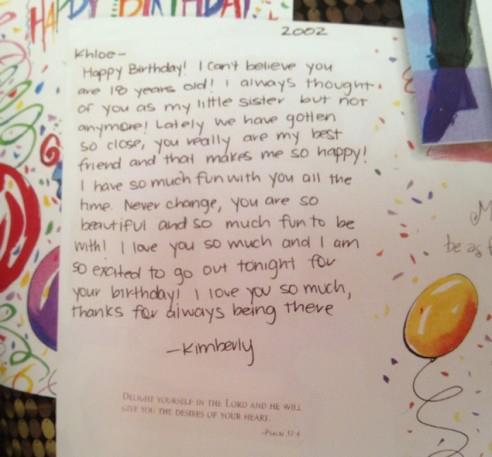 HAPPY BIRTHDAY!
2002
Khloe-
Happy Birthday! I can't believe you
are 18 years old! I always thought
of you as my little sister but not
anymore! Lately we have gotten
so close, you really are my best
friend and that makes me so happy!
I have so much fun with you all the
time. Never change, you are so
beautiful and so much fun to be
with! I love you so much and I am
so excited to go out tonight for
your birthday! I love you so much,
thanks for always being there
-Kimberly
DELIGHT YOURSELF IN THE LORD AND HE WILL
GIVE YOU THE DESIRES OF YOUR HEART.
-PSALM 37:4
be as